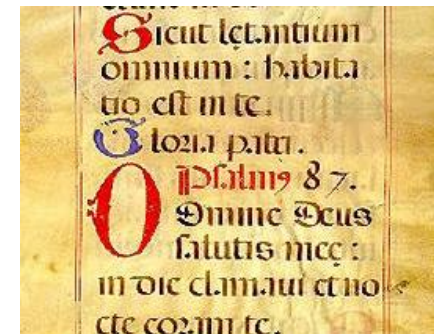 Sicut lętantium
omnium : habita
tio est in te.
Gloria patri.
Psalmꝯ 87.
Domine Deus
salutis meę :
in die clamaui et no
cte coram te.